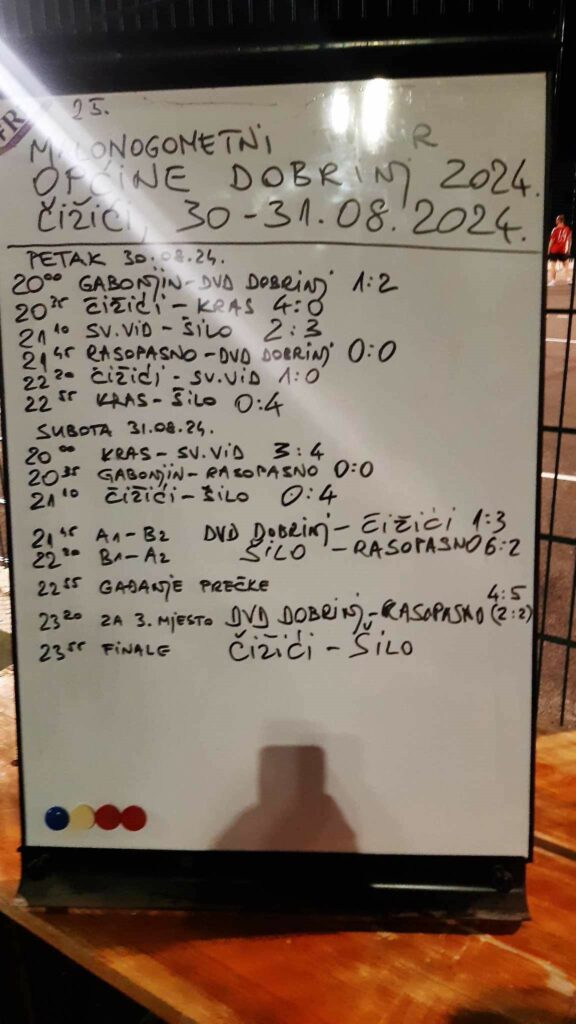 25.
MALONOGOMETNI R
OPĆINE DOBRINJ 2024.
ČIŽIĆI, 30-31.08.2024.
PETAK 30.08.24.
20⁰⁰ GABONJIN-DVD DOBRINJ 1:2
20³⁵ ČIŽIĆI-KRAS 4:0
21¹⁰ SV.VID-ŠILO 2:3
21⁴⁵ RASOPASNO-DVD DOBRINJ 0:0
22²⁰ ČIŽIĆI-SV.VID 1:0
22⁵⁵ KRAS-ŠILO 0:4
SUBOTA 31.08.24.
20⁰⁰ KRAS-SV.VID 3:4
20³⁵ GABONJIN-RASOPASNO 0:0
21¹⁰ ČIŽIĆI-ŠILO 0:4
21⁴⁵ A1-B2 DVD DOBRINJ-ČIŽIĆI 1:3
22²⁰ B1-A2 ŠILO -RASOPASNO 6:2
22⁵⁵ GAĐANJE PREČKE
4:5
23²⁰ ZA 3. MJESTO DVD DOBRINJ-RASOPASNO (2:2)
23⁵⁵ FINALE ČIŽIĆI-ŠILO